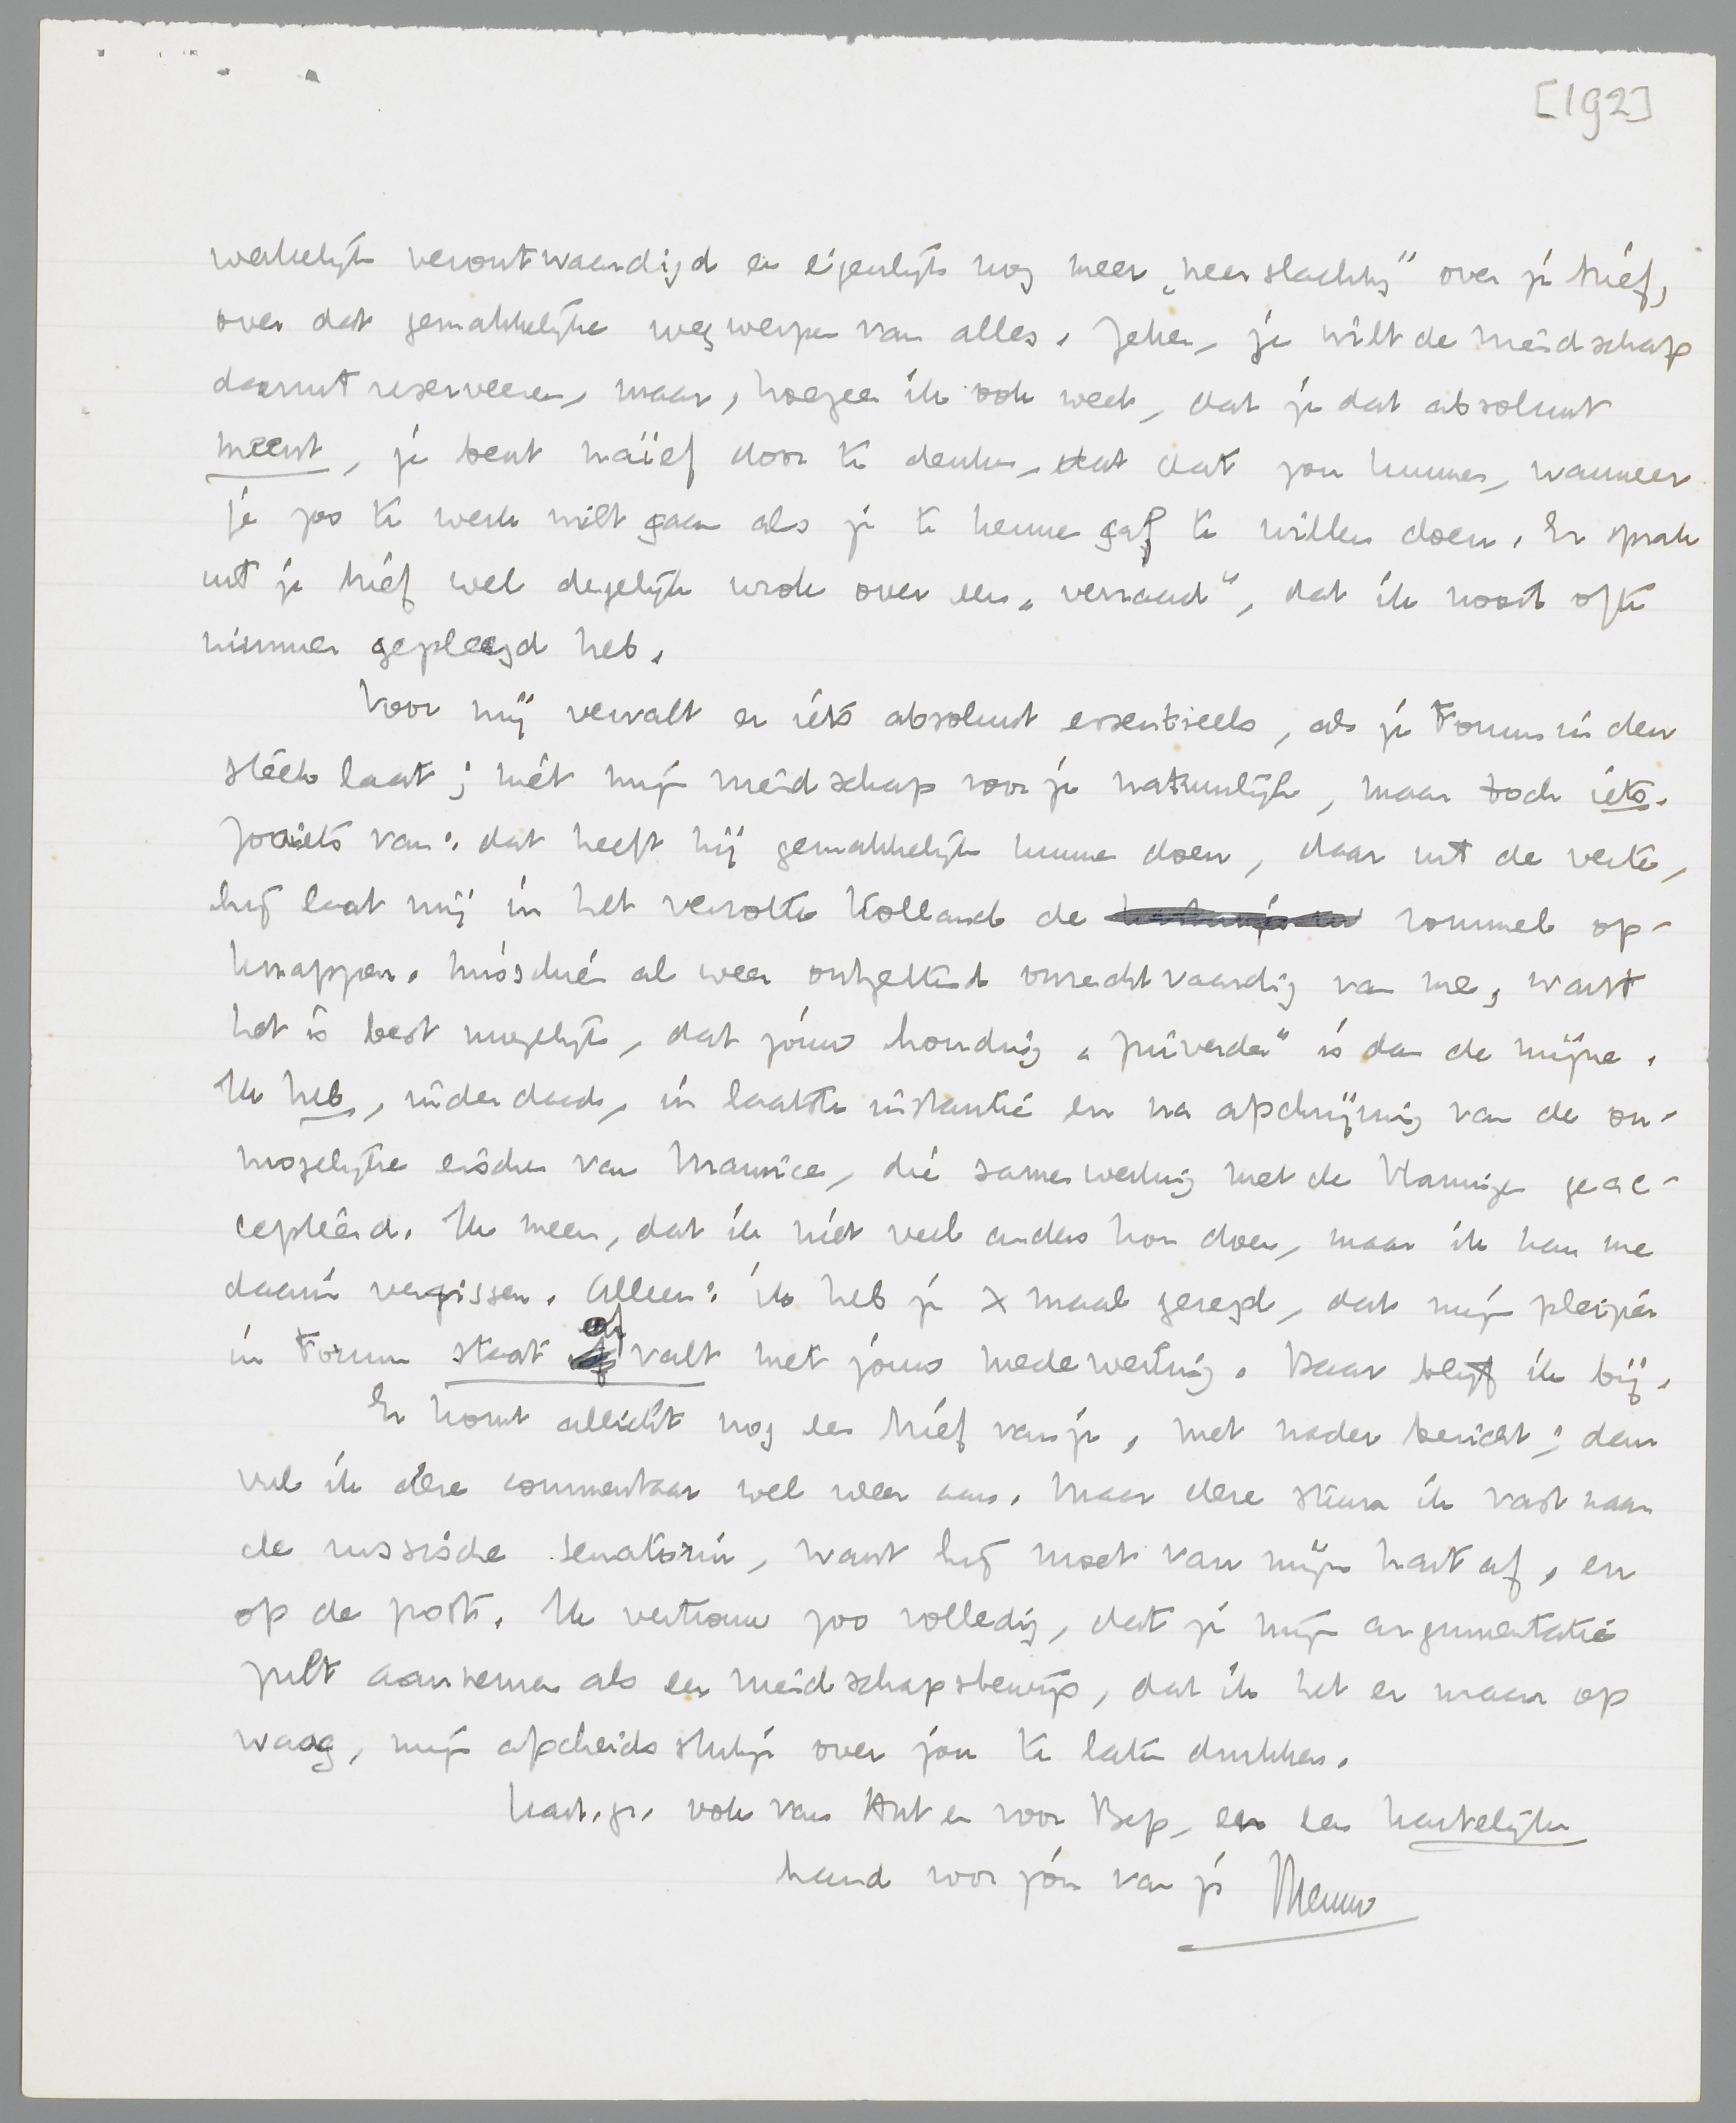 [192]
werkelijk verontwaardigd en eigenlijk nog meer „neerslachtig” over je brief,
over dat gemakkelijke wegwerpen van alles. Zeker, je wilt de vriendschap
daaruit reserveeren, maar, hoezeer ik ook weet, dat je dat absoluut
meent, je bent naïef door te denken, dat dat zou kunnen, wanneer
je zoo te werk wilt gaan als je te kennen gaf te willen doen. Er sprak
uit je brief wel degelijk wrok over een „verraad”, dat ik nooit ofte
nimmer gepleegd heb.
Voor mij vervalt er iets absoluut essentieels, als je Forum in den
steek laat; niet mijn vriendschap voor je natuurlijk, maar toch iets.
Zooiets van: dat heeft hij gemakkelijk kunnen doen, daar uit de verte,
hij laat mij in het verrotte Holland de rommel op-
knappen. Misschien al weer ontzettend onrechtvaardig van me, want
het is best mogelijk, dat jóuw houding „zuiverder” is dan de mijne.
Ik heb, inderdaad, in laatste instantie en na afdwijning van de on-
mogelijke eischen van Maurice, die samenwerking met de Vlamingen geac-
cepteerd. Ik meen, dat ik niet veel anders kon doen, maar ik kan me
daarin vergissen. Alleen: ik heb je x maal gezegd, dat mijn plezier
in Forum staat of valt met jouw medewerking. Daar blijf ik bij.
Er komt allicht nog een brief van je, met nader bericht; dan
vul ik deze commentaar wel weer aan. Maar deze stuur ik vast naar
de russische senatorin, want hij moet van mijn hart af, en
op de post. Ik vertrouw zoo volledig, dat je mijn argumentatie
zult aannemen als een vriendschapsbewijs, dat ik het er maar op
waag, mijn afscheidsstukje over jou te laten drukken.
hart. gr. ook van Ant en voor Bep, en een hartelijke
hand voor jóu van je Menno